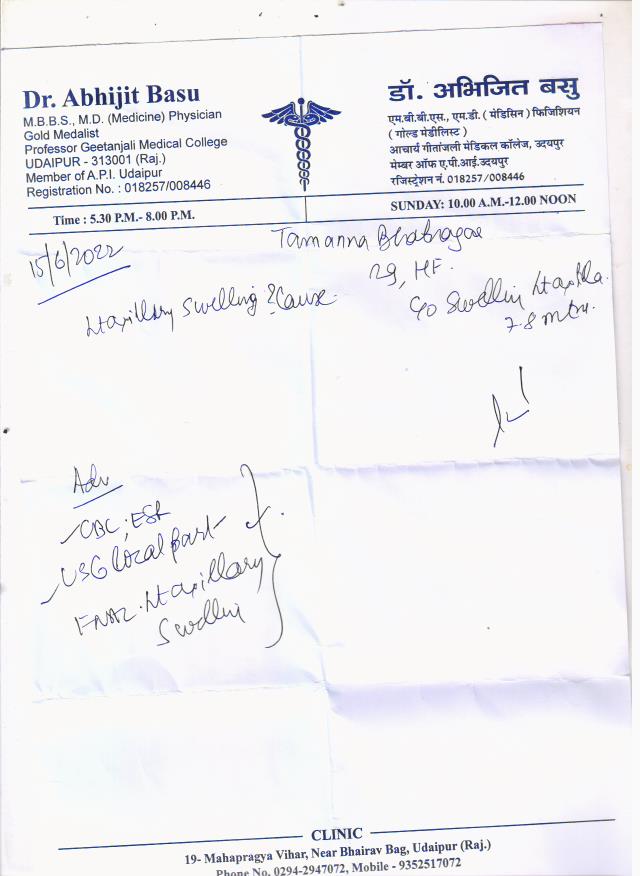 Dr. Abhijit Basu
M.B.B.S., M.D. (Medicine) Physician
Gold Medalist
Professor Geetanjali Medical College
UDAIPUR - 313001 (Raj.)
Member of A.P.I. Udaipur
Registration No. : 018257/008446
डॉ. अभिजित बसु
एम.बी.बी.एस., एम.डी. ( मेडिसिन ) फिजिशियन
( गोल्ड मेडीलिस्ट )
आचार्य गीतांजली मेडिकल कॉलेज, उदयपुर
मेम्बर ऑफ ए.पी.आई.उदयपुर
रजिस्ट्रेशन नं. 018257/008446
Time : 5.30 P.M.- 8.00 P.M.
SUNDAY: 10.00 A.M.-12.00 NOON
15/6/2022
Tamanna Bhatnagar
29, HF.
c/o Swelling Lt axilla
7-8 mth.
Lt axillary swelling ? Cause
Adv
CBC, ESR
USG local part
FNAC Lt axillary
Swelling
CLINIC
19- Mahapragya Vihar, Near Bhairav Bag, Udaipur (Raj.)
Phone No. 0294-2947072, Mobile - 9352517072